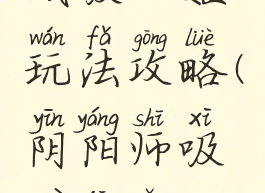 wán fǎ gōng lüè
玩法攻略(
yīn yáng shī xī
阴阳师吸